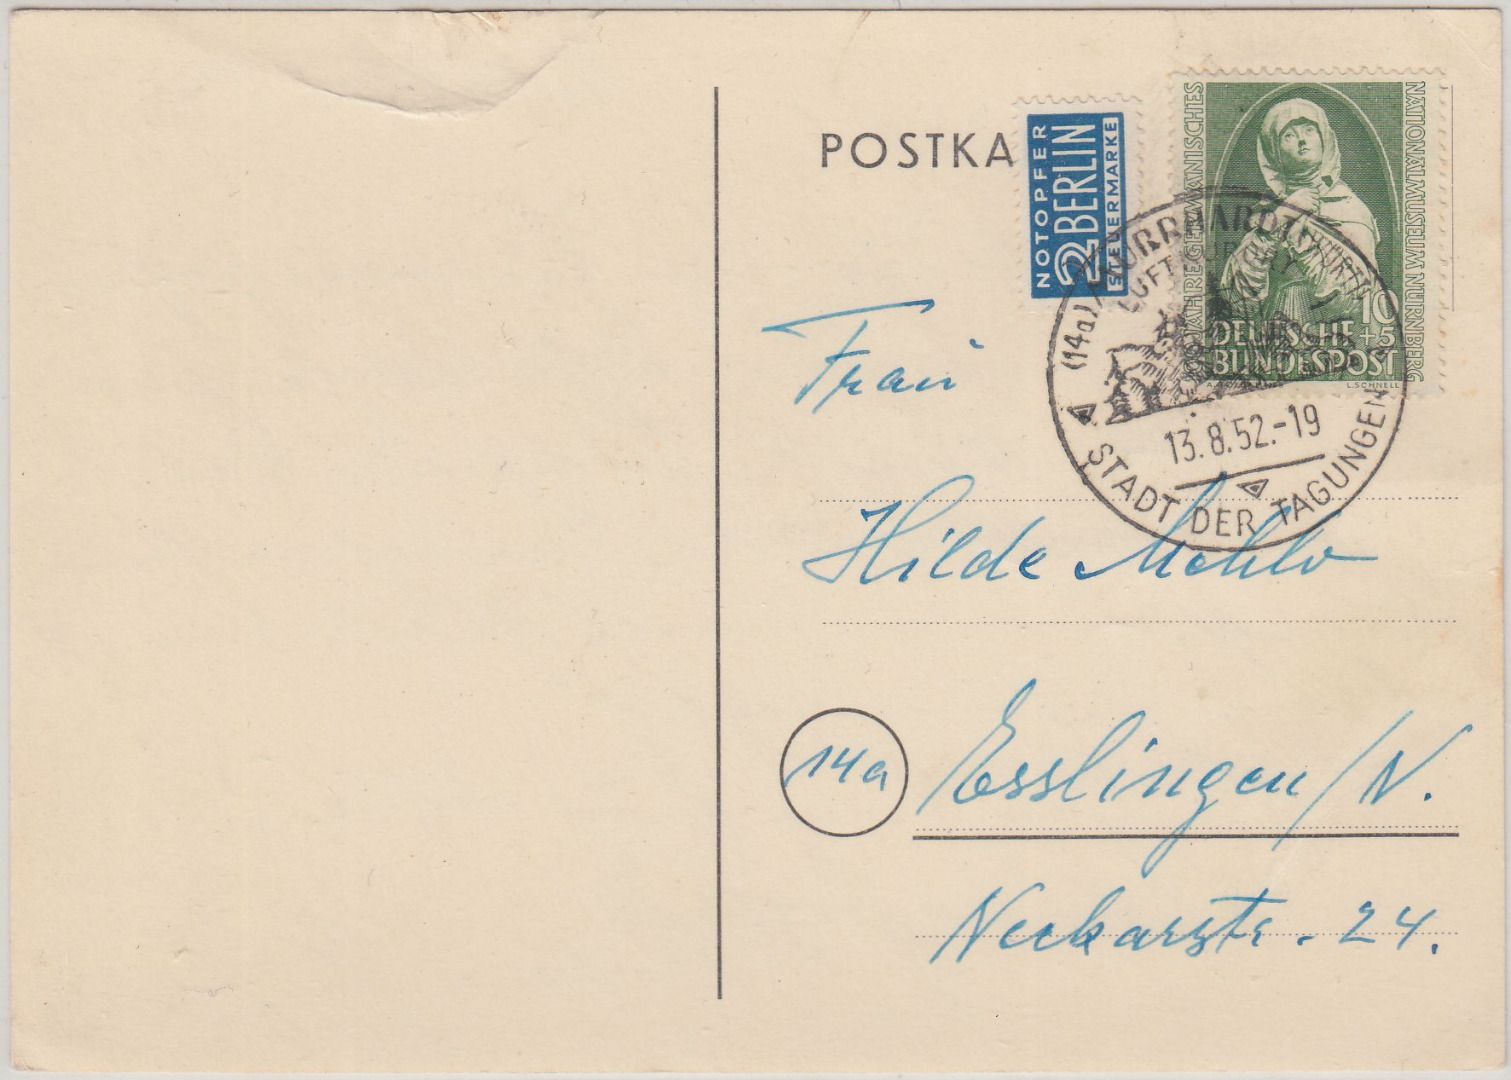 POSTKA
NOTOPFER
2 BERLIN
STEUERMARKE
JAHRE GERMANISCHES
NATIONALMUSEUM NÜRNBERG
10
+5
DEUTSCHE
BUNDESPOST
L.SCHNELL
(14a) MURRHARDT (WÜRTT)
LUFTKURORT
13.8.52.-19
STADT DER TAGUNGEN
Frau
Hilde
14a
Esslingen/N.
Neckarstr. 24.